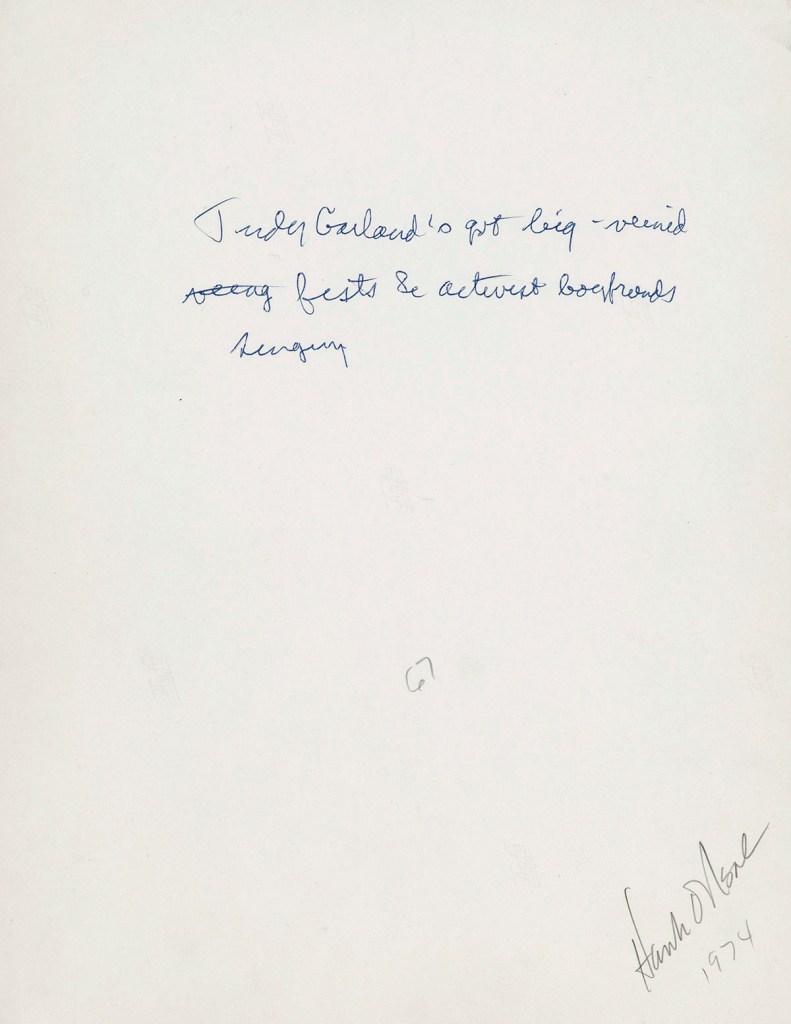 Judy Garland's got big-veined
fists & activist boyfriends
singing
67
Hank O'Neal
1974